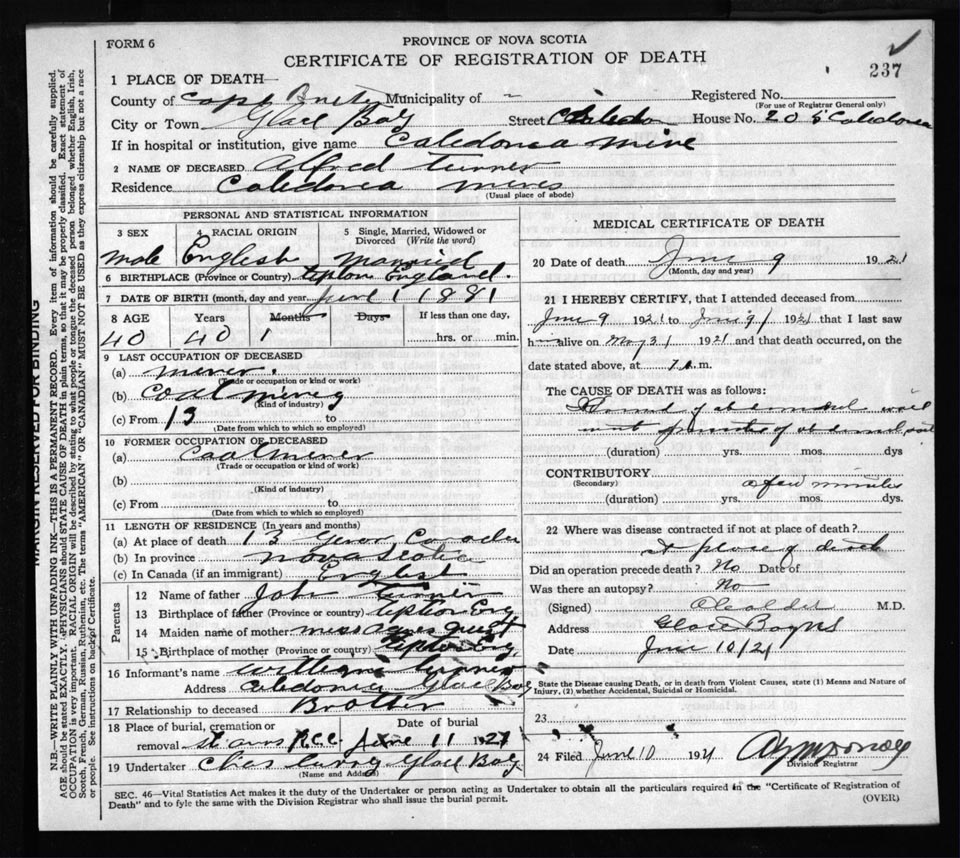 FORM 6
PROVINCE OF NOVA SCOTIA
CERTIFICATE OF REGISTRATION OF DEATH
237
1 PLACE OF DEATH—
County of Cape Breton Municipality of - Registered No.
(For use of Registrar General only)
City or Town Glace Bay Street Caledonia House No. 205 Caledonia
If in hospital or institution, give name Caledonia Mine
2 NAME OF DECEASED Alfred Turner
Residence Caledonia Mines
(Usual place of abode)
PERSONAL AND STATISTICAL INFORMATION
3 SEX 4 RACIAL ORIGIN 5 Single, Married, Widowed or Divorced (Write the word)
male English Married
6 BIRTHPLACE (Province or Country) Tipton England.
7 DATE OF BIRTH (month, day and year June 1 1881
8 AGE Years Months Days If less than one day,
40 40 1 hrs. or min.
9 LAST OCCUPATION OF DECEASED
(a) miner.
(Trade or occupation or kind or work)
(b) Coal mining
(Kind of industry)
(c) From 13 to
(Date from which to which so employed)
10 FORMER OCCUPATION OF DECEASED
(a) Coal miner
(Trade or occupation or kind of work)
(b)
(Kind of industry)
(c) From to
(Date from which to which so employed)
11 LENGTH OF RESIDENCE (In years and months)
(a) At place of death 13 years Canada
(b) In province Nova Scotia
(c) In Canada (if an immigrant) English
Parents
12 Name of father John Turner
13 Birthplace of father (Province or country) Tipton Eng
14 Maiden name of mother miss Agnes Guest
15 Birthplace of mother (Province or country) Tipton Eng
16 Informant's name William Turner
Address Caledonia Glace Bay
17 Relationship to deceased Brother
18 Place of burial, cremation or removal Date of burial
June 11 1921
19 Undertaker Chas Glace Bay
(Name and Address)
MEDICAL CERTIFICATE OF DEATH
20 Date of death June 9 1921
(Month, day and year)
21 I HEREBY CERTIFY, that I attended deceased from
June 9 1921 to June 9 1921 that I last saw
h alive on May 31 1921 and that death occurred, on the
date stated above, at 7 a.m.
The CAUSE OF DEATH was as follows:
(duration) yrs. mos. dys
CONTRIBUTORY
(Secondary) a few minutes
(duration) yrs. mos. dys.
22 Where was disease contracted if not at place of death?
at place of death
Did an operation precede death? No Date of
Was there an autopsy? No
(Signed) M.D.
Address Glace Bay NS
Date June 10/21
State the Disease causing Death, or in death from Violent Causes, state (1) Means and Nature of
Injury, (2) whether Accidental, Suicidal or Homicidal.
23
24 Filed June 10 1921
Division Registrar
SEC. 46—Vital Statistics Act makes it the duty of the Undertaker or person acting as Undertaker to obtain all the particulars required in the "Certificate of Registration of
Death" and to fyle the same with the Division Registrar who shall issue the burial permit.
(OVER)
MARGIN RESERVED FOR BINDING
N.B.—WRITE PLAINLY WITH UNFADING INK—THIS IS A PERMANENT RECORD. Every item of information should be carefully supplied.
AGE should be stated EXACTLY. PHYSICIANS should STATE CAUSE OF DEATH in plain terms, so that it may be properly classified. Exact statement of
OCCUPATION is very important. RACIAL ORIGIN will be described by stating to what people or tongue the deceased person belonged, whether English, Irish,
Scotch, French, German, Russian, Ruthenian, etc. The terms "AMERICAN" OR "CANADIAN" MUST NOT BE USED as they express citizenship but not a race
or people. See instructions on back of Certificate.